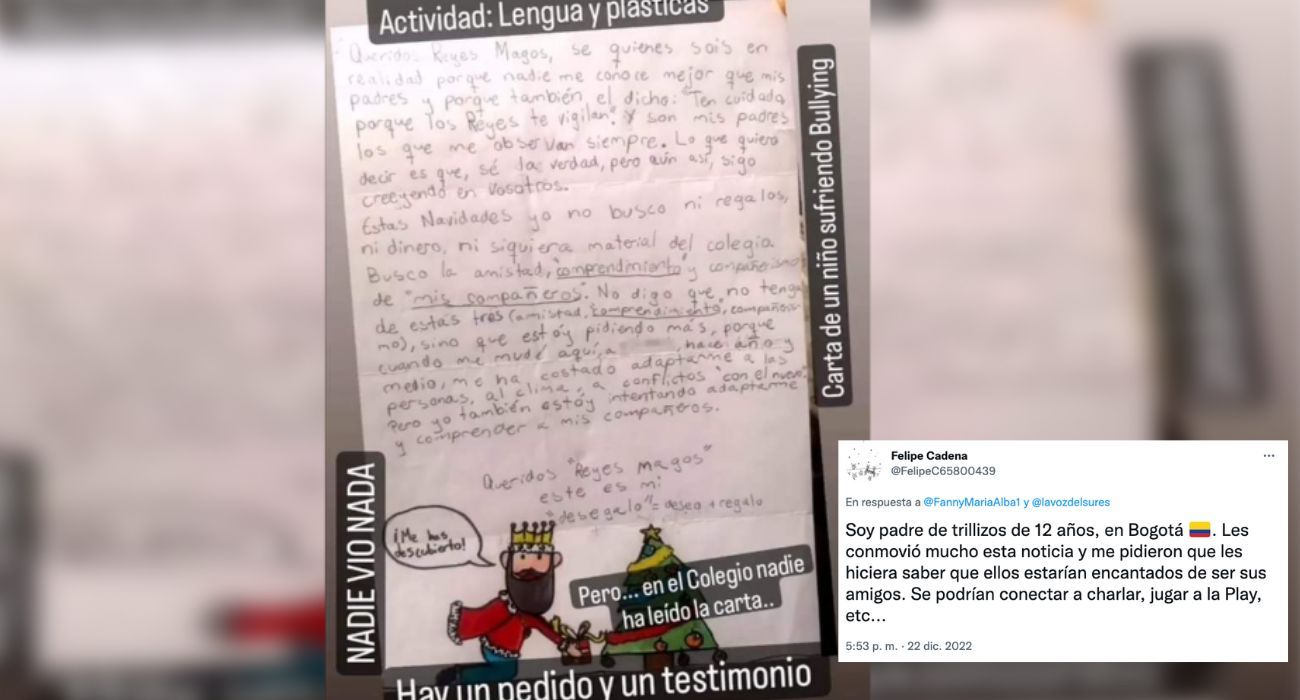 Actividad: Lengua y plásticas
Queridos Reyes Magos, se quienes sois en
realidad porque nadie me conoce mejor que mis
padres y porque también el dicho: "Ten cuidado
porque los Reyes te vigilan". Y son mis padres
los que me observan siempre. Lo que quiero
decir es que, sé la verdad, pero aún así, sigo
creeyendo en vosotros.
Estas Navidades yo no busco ni regalos,
ni dinero, ni siquiera material del colegio.
Busco la amistad, "comprendimiento" y compañerismo
de "mis compañeros". No digo que no tenga
de estas tres (amistad, comprendimiento, compañeris-
mo), sino que estoy pidiendo más, porque
cuando me mudé aquí, a hace año y
medio, me ha costado adaptarme a las
personas, al clima, a conflictos "con el nuevo".
Pero yo también estoy intentando adaptarme
y comprender a mis compañeros.
Queridos "Reyes Magos"
este es mi
"desegalo" = deseo + regalo
Carta de un niño sufriendo Bullying
NADIE VIO NADA
¡Me has
descubierto!
Pero... en el Colegio nadie
ha leído la carta..
Hay un pedido y un testimonio
Felipe Cadena
@FelipeC65800439
En respuesta a @FannyMariaAlba1 y @lavozdelsures
Soy padre de trillizos de 12 años, en Bogotá 🇨🇴. Les
conmovió mucho esta noticia y me pidieron que les
hiciera saber que ellos estarían encantados de ser sus
amigos. Se podrían conectar a charlar, jugar a la Play,
etc...
5:53 p. m. · 22 dic. 2022